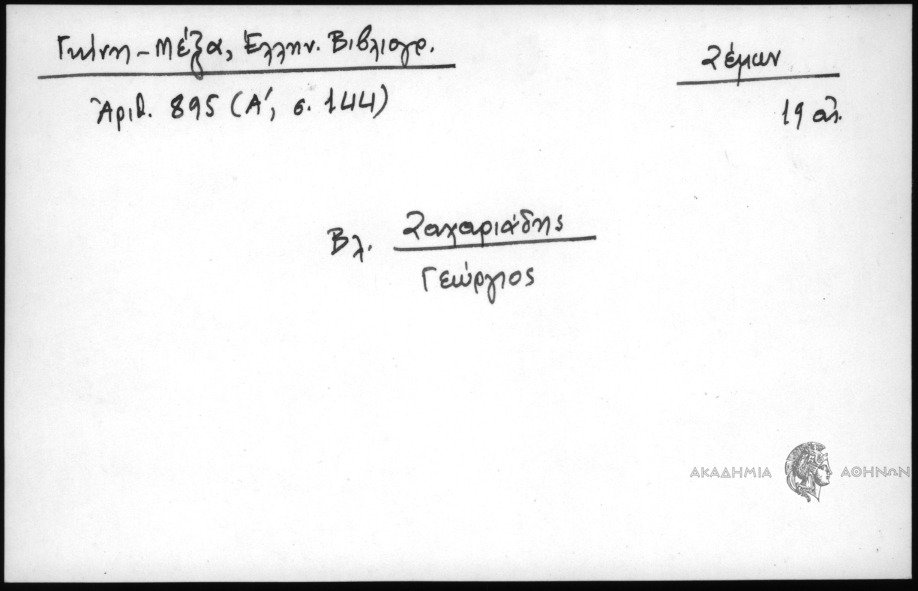 Γκίνη - Μέξα, Ἑλλην. Βιβλιογρ.
Ζέμων
Ἀριθ. 895 (Α', σ. 144)
19 αἰ.
Βλ. Ζαχαριάδης
Γεώργιος
ΑΚΑΔΗΜΙΑ ΑΘΗΝΩΝ